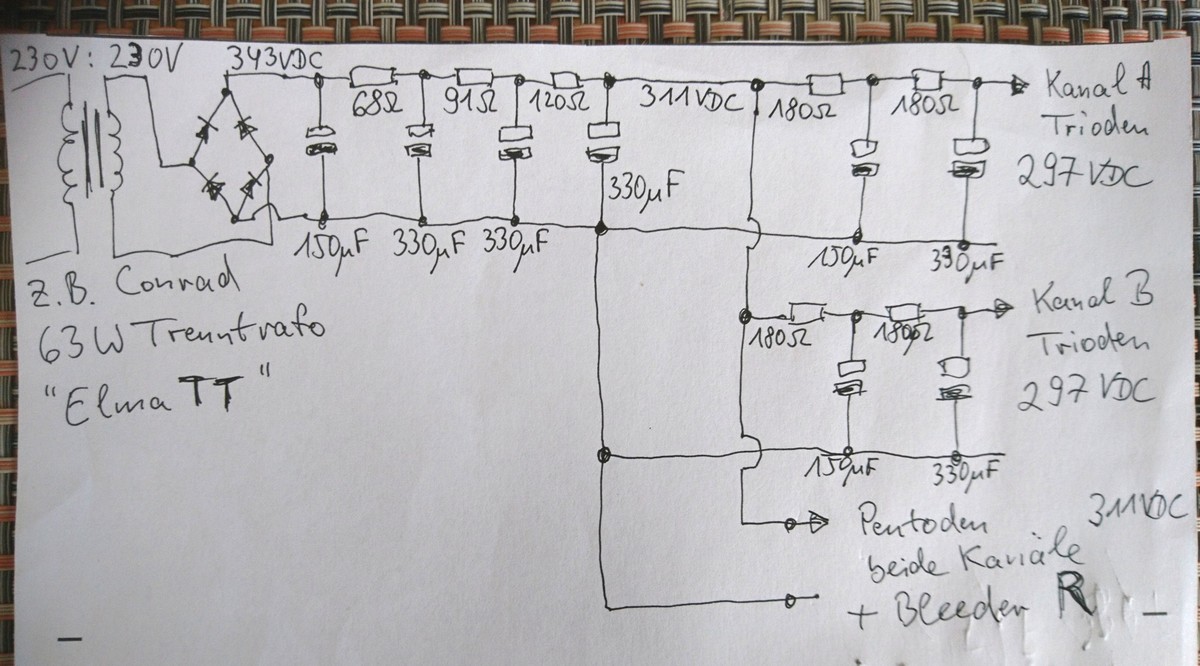 230V : 230V
343VDC
68Ω
91Ω
120Ω
311VDC
180Ω
180Ω
Kanal A
Trioden
297 VDC
330µF
150µF
330µF
330µF
150µF
330µF
Z.B. Conrad
63W Trenntrafo
"Elma TT"
180Ω
180Ω
Kanal B
Trioden
297 VDC
150µF
330µF
Pentoden
311VDC
beide Kanäle
+ Bleeder R